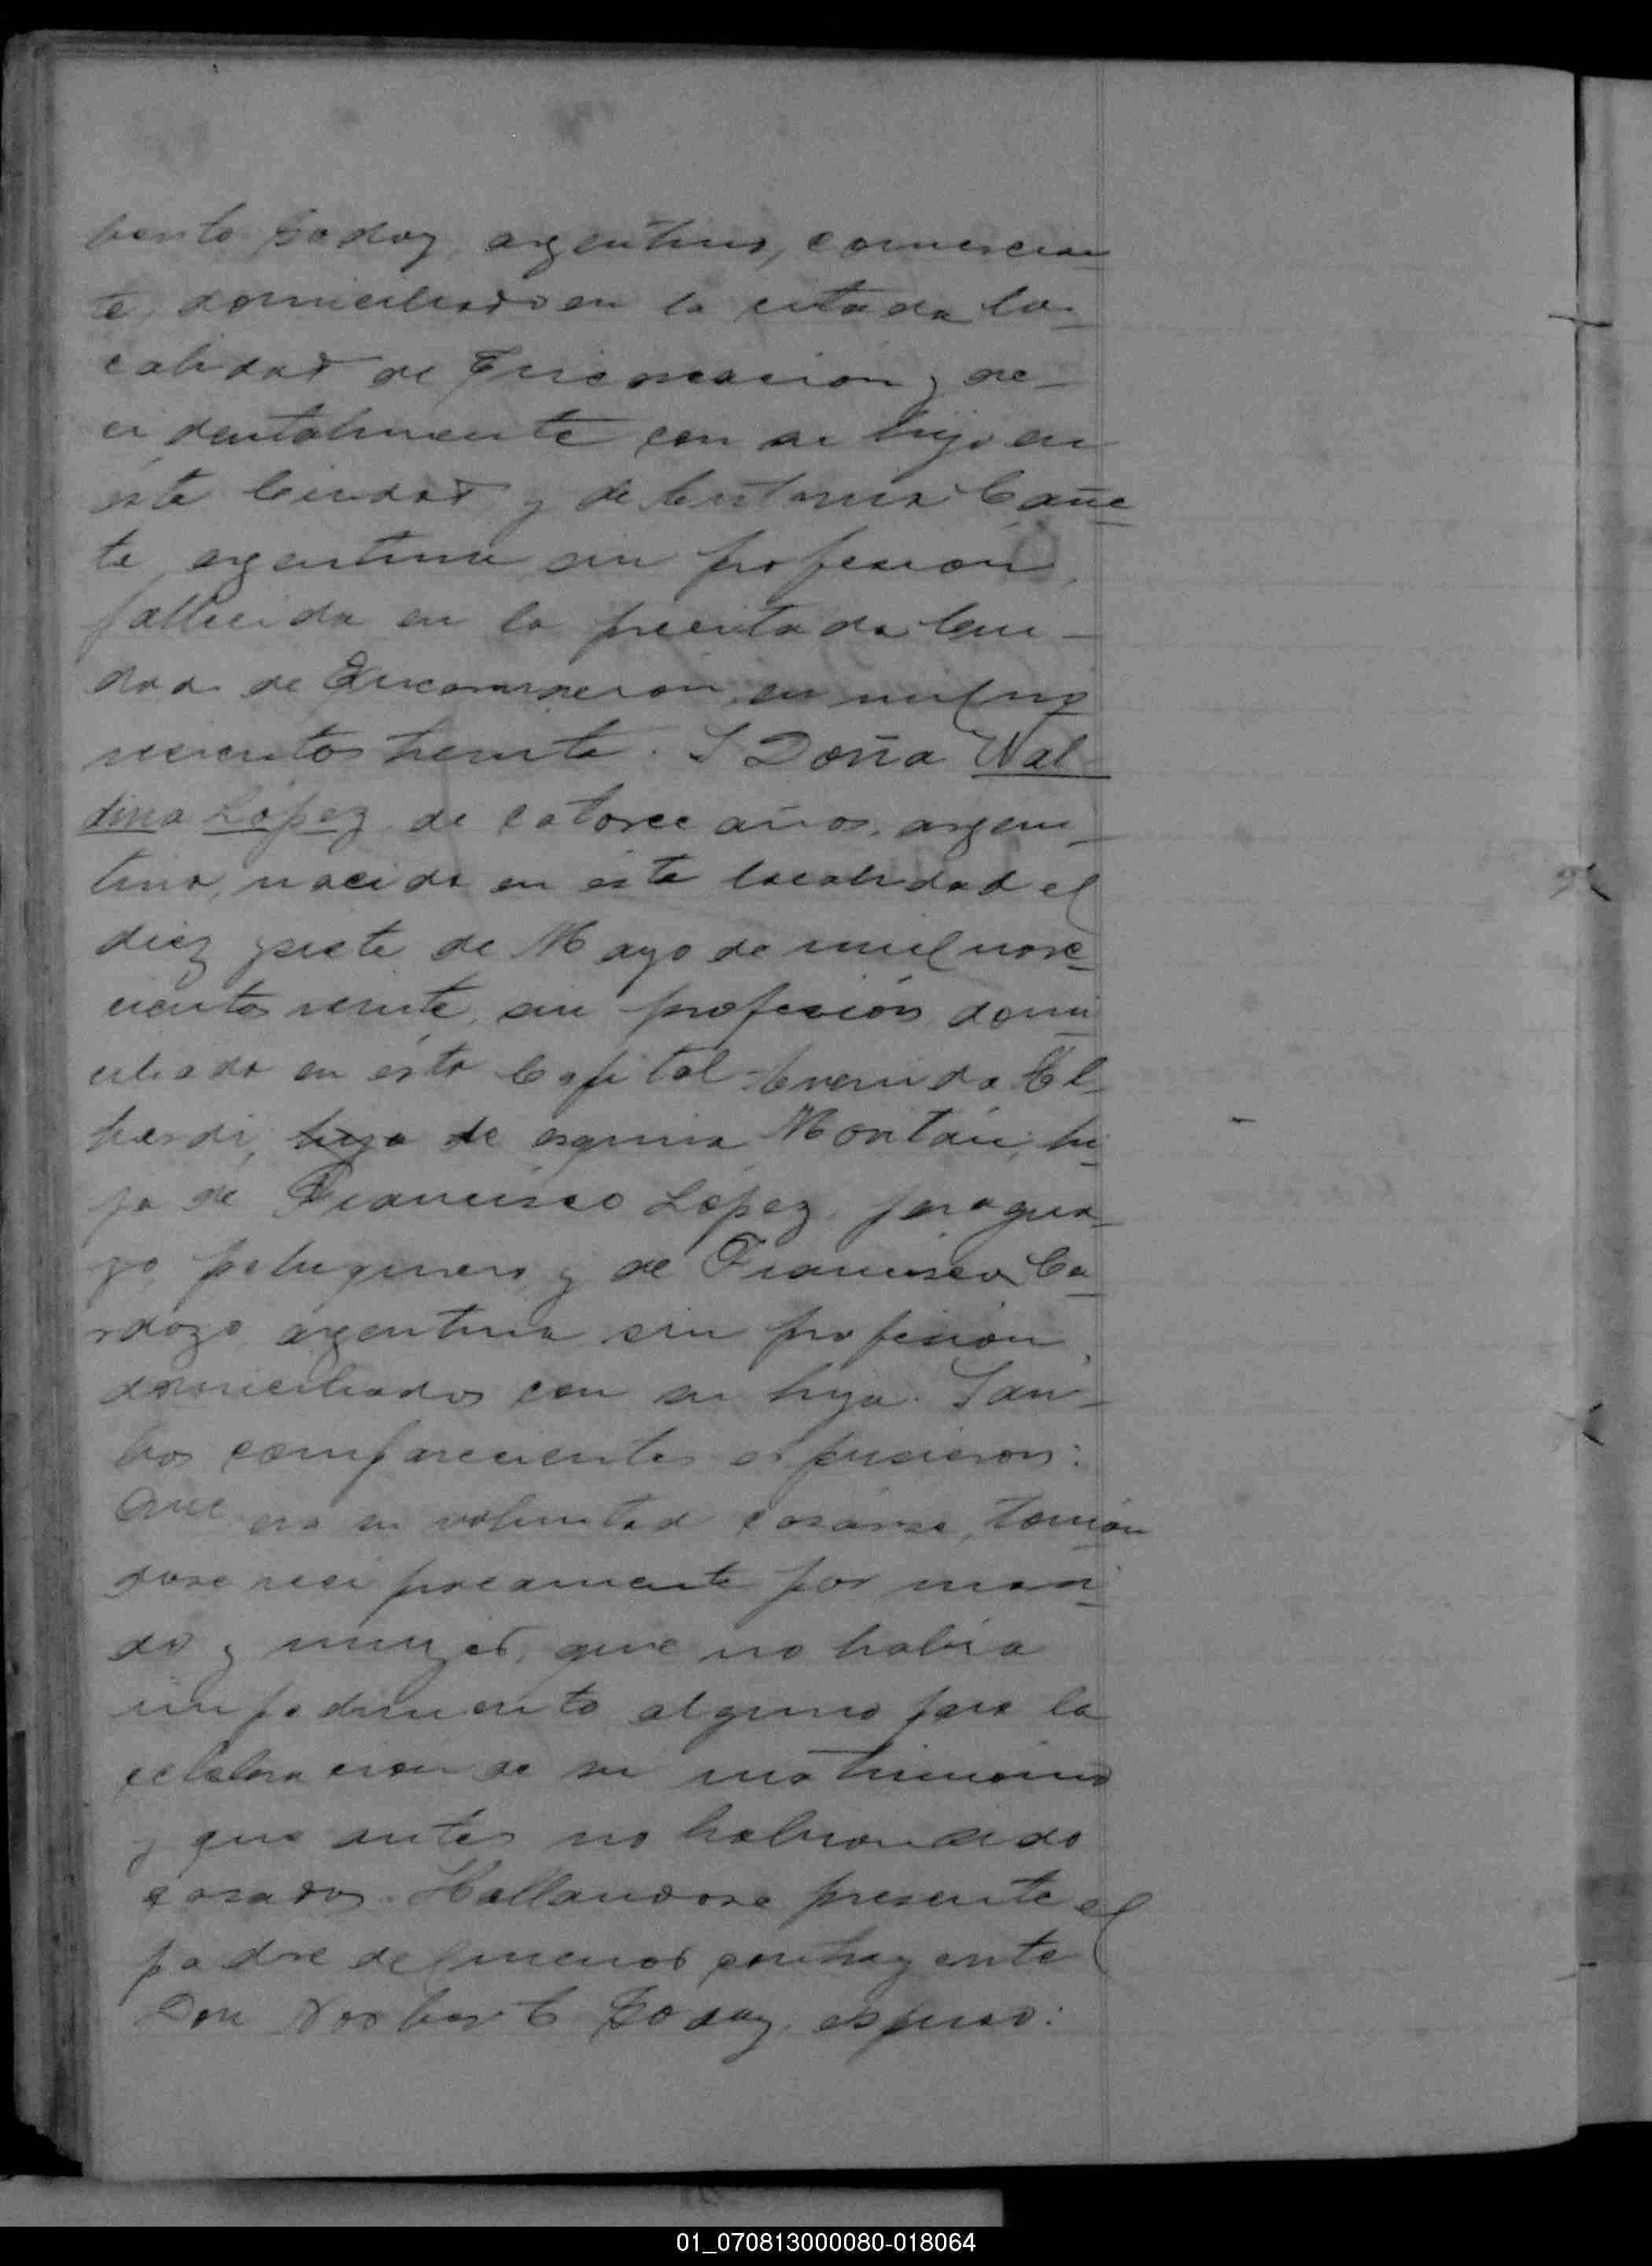 berto Godoy, argentino, comercian
te, domiciliado en la citada lo-
calidad de Encarnación y ac-
cidentalmente con su hijo en
ésta Ciudad y de Antonia Cañe
te, argentina sin profesión,
fallecida en la precitada Ciu-
dad de Encarnación en mil no
vecientos treinta. Y Doña Wal-
dina López, de catorce años, argen-
tina, nacida en ésta localidad el
diez y siete de Mayo de mil nove-
cientos veinte, sin profesión, domi-
ciliada en ésta Capital Avenida Al-
berdi, hija de esquina Moritán, hi-
ja de Francisco López, paragua-
yo, peluquero y de Francisca Ca-
rdozo, argentina sin profesión,
domiciliados con su hija. Y am-
bos comparecientes expusieron:
Que era su voluntad casarse, tomán
dose recíprocamente por mari-
do y mujer, que no había
impedimento alguno para la
celebración de su matrimonio
y que antes no habían sido
casados. Hallandose presente el
padre del menor contrayente
Don Norberto Godoy, expuso:
01_070813000080-018064